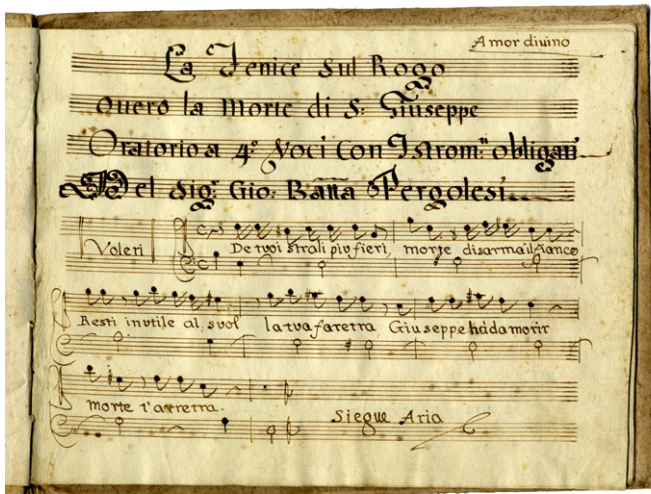 Amor divino
La Fenice Sul Rogo
Overo la Morte di S: Giuseppe
Oratorio a 4.º Voci Con Istrom.ti obligati
Del Sig.r Gio: Batta Pergolesi
Voleri De tuoi strali piu fieri, morte disarma il fianco
Resti inutile al suol la tua faretra Giuseppe hà da morir
morte t'arretra.
Siegue Aria